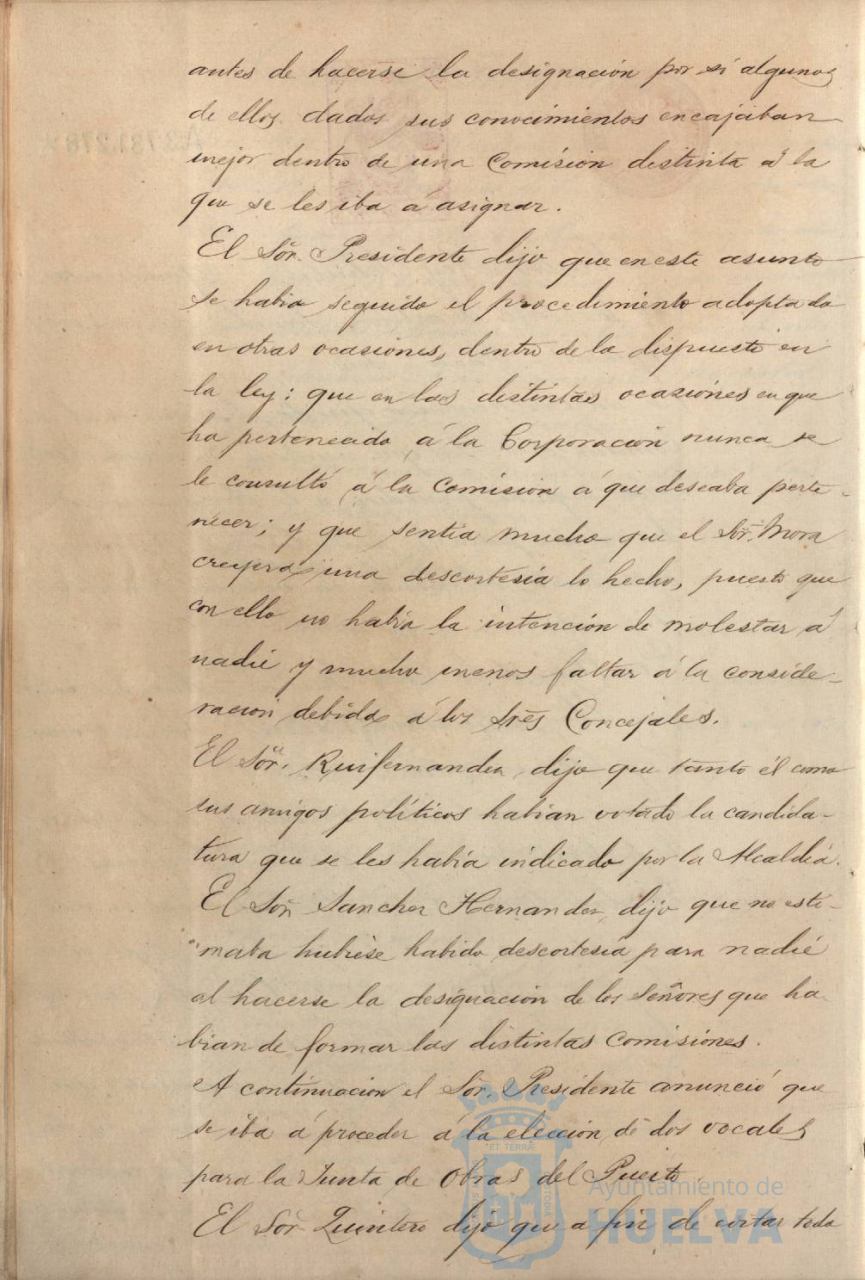 antes de hacerse la designación por si algunos
de ellos dados sus conocimientos encajaban
mejor dentro de una Comisión distinta á la
que se les iba á asignar.
El Sor. Presidente dijo que en este asunto
se habia seguido el procedimiento adoptado
en otras ocasiones, dentro de lo dispuesto en
la ley: que en las distintas ocasiones en que
ha pertenecido á la Corporación nunca se
le consultó á la Comisión á que deseaba perte-
necer; y que sentia mucho que el Sor. Mora
creyera una descortesía lo hecho, puesto que
con ello no había la intención de molestar á
nadie y mucho menos faltar á la conside-
ración debida á los Sres Concejales.
El Sor. Ruifernandez dijo que tanto él como
sus amigos políticos habian votado la candida-
tura que se les había indicado por la Alcaldía.
El Sor Sanchez Hernandez dijo que no esti-
maba hubiese habido descortesía para nadie
al hacerse la designación de los Señores que ha
bian de formar las distintas Comisiones.
A continuacion el Sor. Presidente anunció que
se iba á proceder á la elección de dos vocales
para la Junta de Obras del Puerto.
El Sor Quintero dijo que a fin de cortar toda
Ayuntamiento de
HUELVA